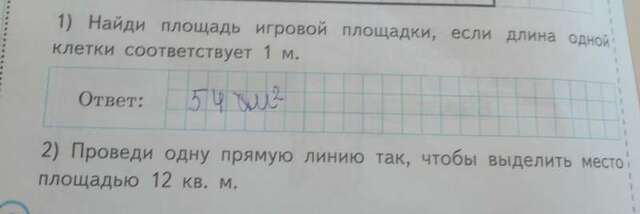 1) Найди площадь игровой площадки, если длина одной
клетки соответствует 1 м.
Ответ: 54 см²
2) Проведи одну прямую линию так, чтобы выделить место
площадью 12 кв. м.